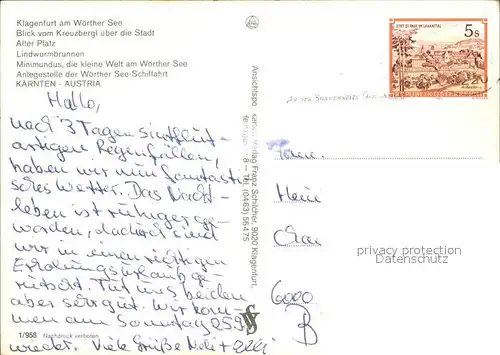 Klagenfurt am Wörther See
Blick vom Kreuzbergl über die Stadt
Alter Platz
Lindwurmbrunnen
Minimundus, die kleine Welt am Wörther See
Anlegestelle der Wörther See-Schiffahrt
KÄRNTEN - AUSTRIA
Hallo,
nach 3 Tagen sintflut-
artigen Regenfällen,
haben wir nun fantasti-
sches Wetter. Das Nacht-
leben ist ruhiger ge-
worden, dadurch sind
wir in einen richtigen
Erholungsurlaub ge-
rutscht. Tut uns beiden
aber sehr gut. Wir kom-
men am Sonntag 25.9
wieder. Viele Grüße
1/958 Nachdruck verboten
Verlag Franz Schilcher, 9020 Klagenfurt,
Tel. (0463) 56 4 75
STIFT ST. PAUL IM LAVANTTAL
5s
REPUBLIK ÖSTERREICH
6000
privacy protection
Datenschutz